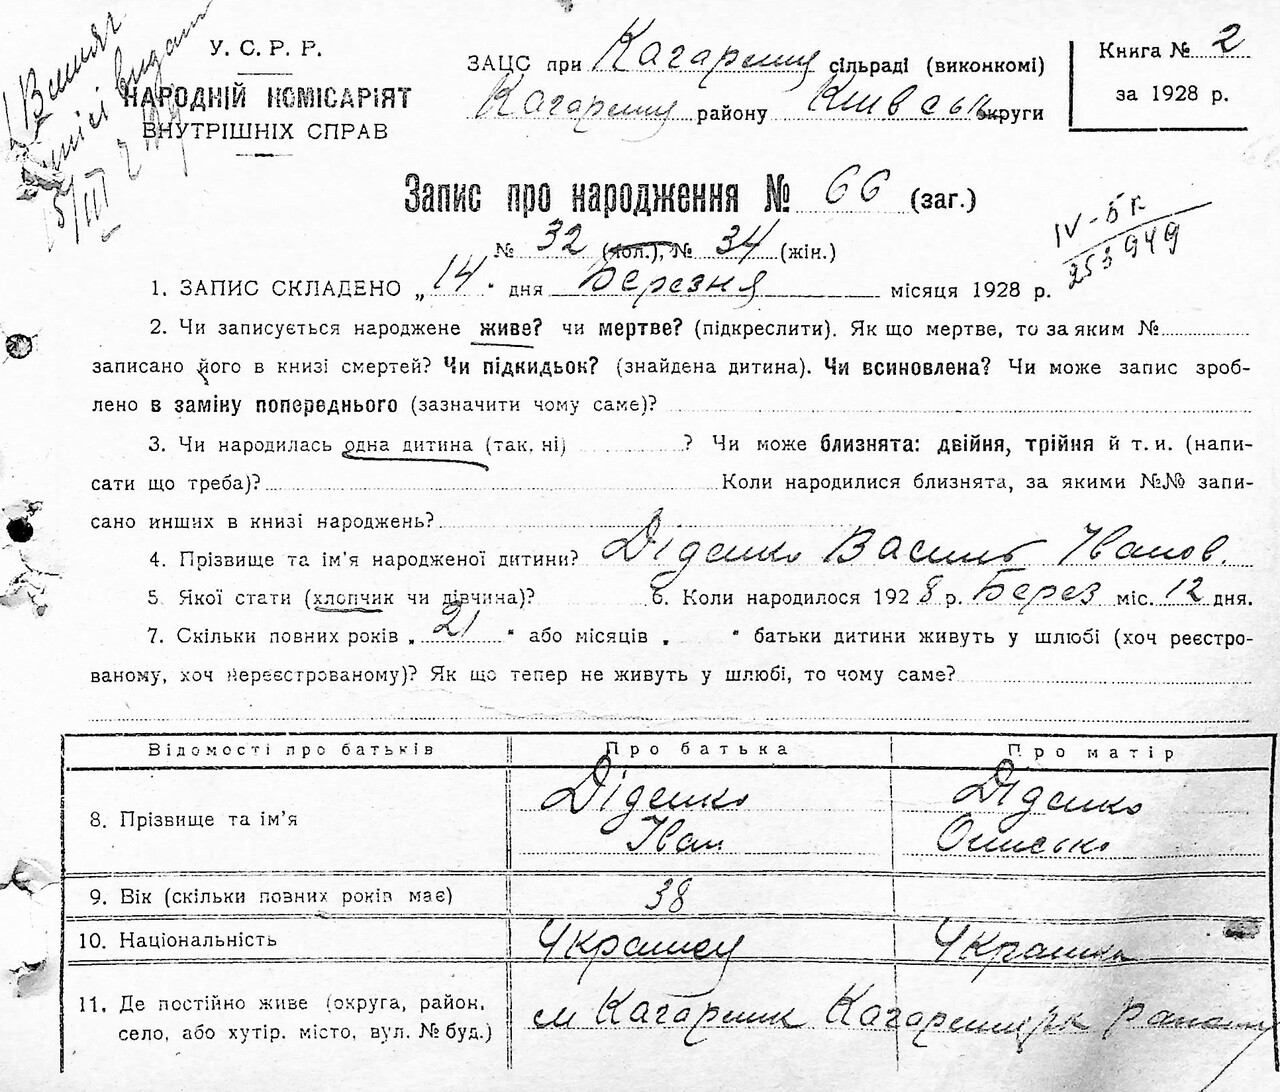 У. С. Р. Р.
НАРОДНІЙ КОМІСАРІЯТ
ВНУТРІШНІХ СПРАВ
ЗАЦС при Кагарлиц сільраді (виконкомі)
Кагарлиц району Київськ округи
Книга № 2
за 1928 р.
Запис про народження № 66 (заг.)
№ 32 (чол.), № 34 (жін.)
IV-БГ
253949
1. ЗАПИС СКЛАДЕНО „14" дня Березня місяця 1928 р.
2. Чи записується народжене живе? чи мертве? (підкреслити). Як що мертве, то за яким №
записано його в книзі смертей? Чи підкидьок? (знайдена дитина). Чи всиновлена? Чи може запис зроб-
лено в заміну попереднього (зазначити чому саме)?
3. Чи народилась одна дитина (так, ні) ? Чи може близнята: двійня, трійня й т. и. (напи-
сати що треба)? Коли народилися близнята, за якими №№ запи-
сано инших в книзі народжень?
4. Прізвище та ім'я народженої дитини? Діденко Василь Іванов.
5. Якої стати (хлопчик чи дівчина)? 6. Коли народилося 1928 р. Берез міс. 12 дня.
7. Скільки повних років „21" або місяців „ " батьки дитини живуть у шлюбі (хоч реєстро-
ваному, хоч нереєстрованому)? Як що тепер не живуть у шлюбі, то чому саме?
Відомості про батьків Про батька Про матір
8. Прізвище та ім'я Діденко Іван Діденко
9. Вік (скільки повних років має) 38
10. Національність Українец Українка
11. Де постійно живе (округа, район, село, або хутір, місто, вул. № буд.) м Кагарлик Кагарлицьк району